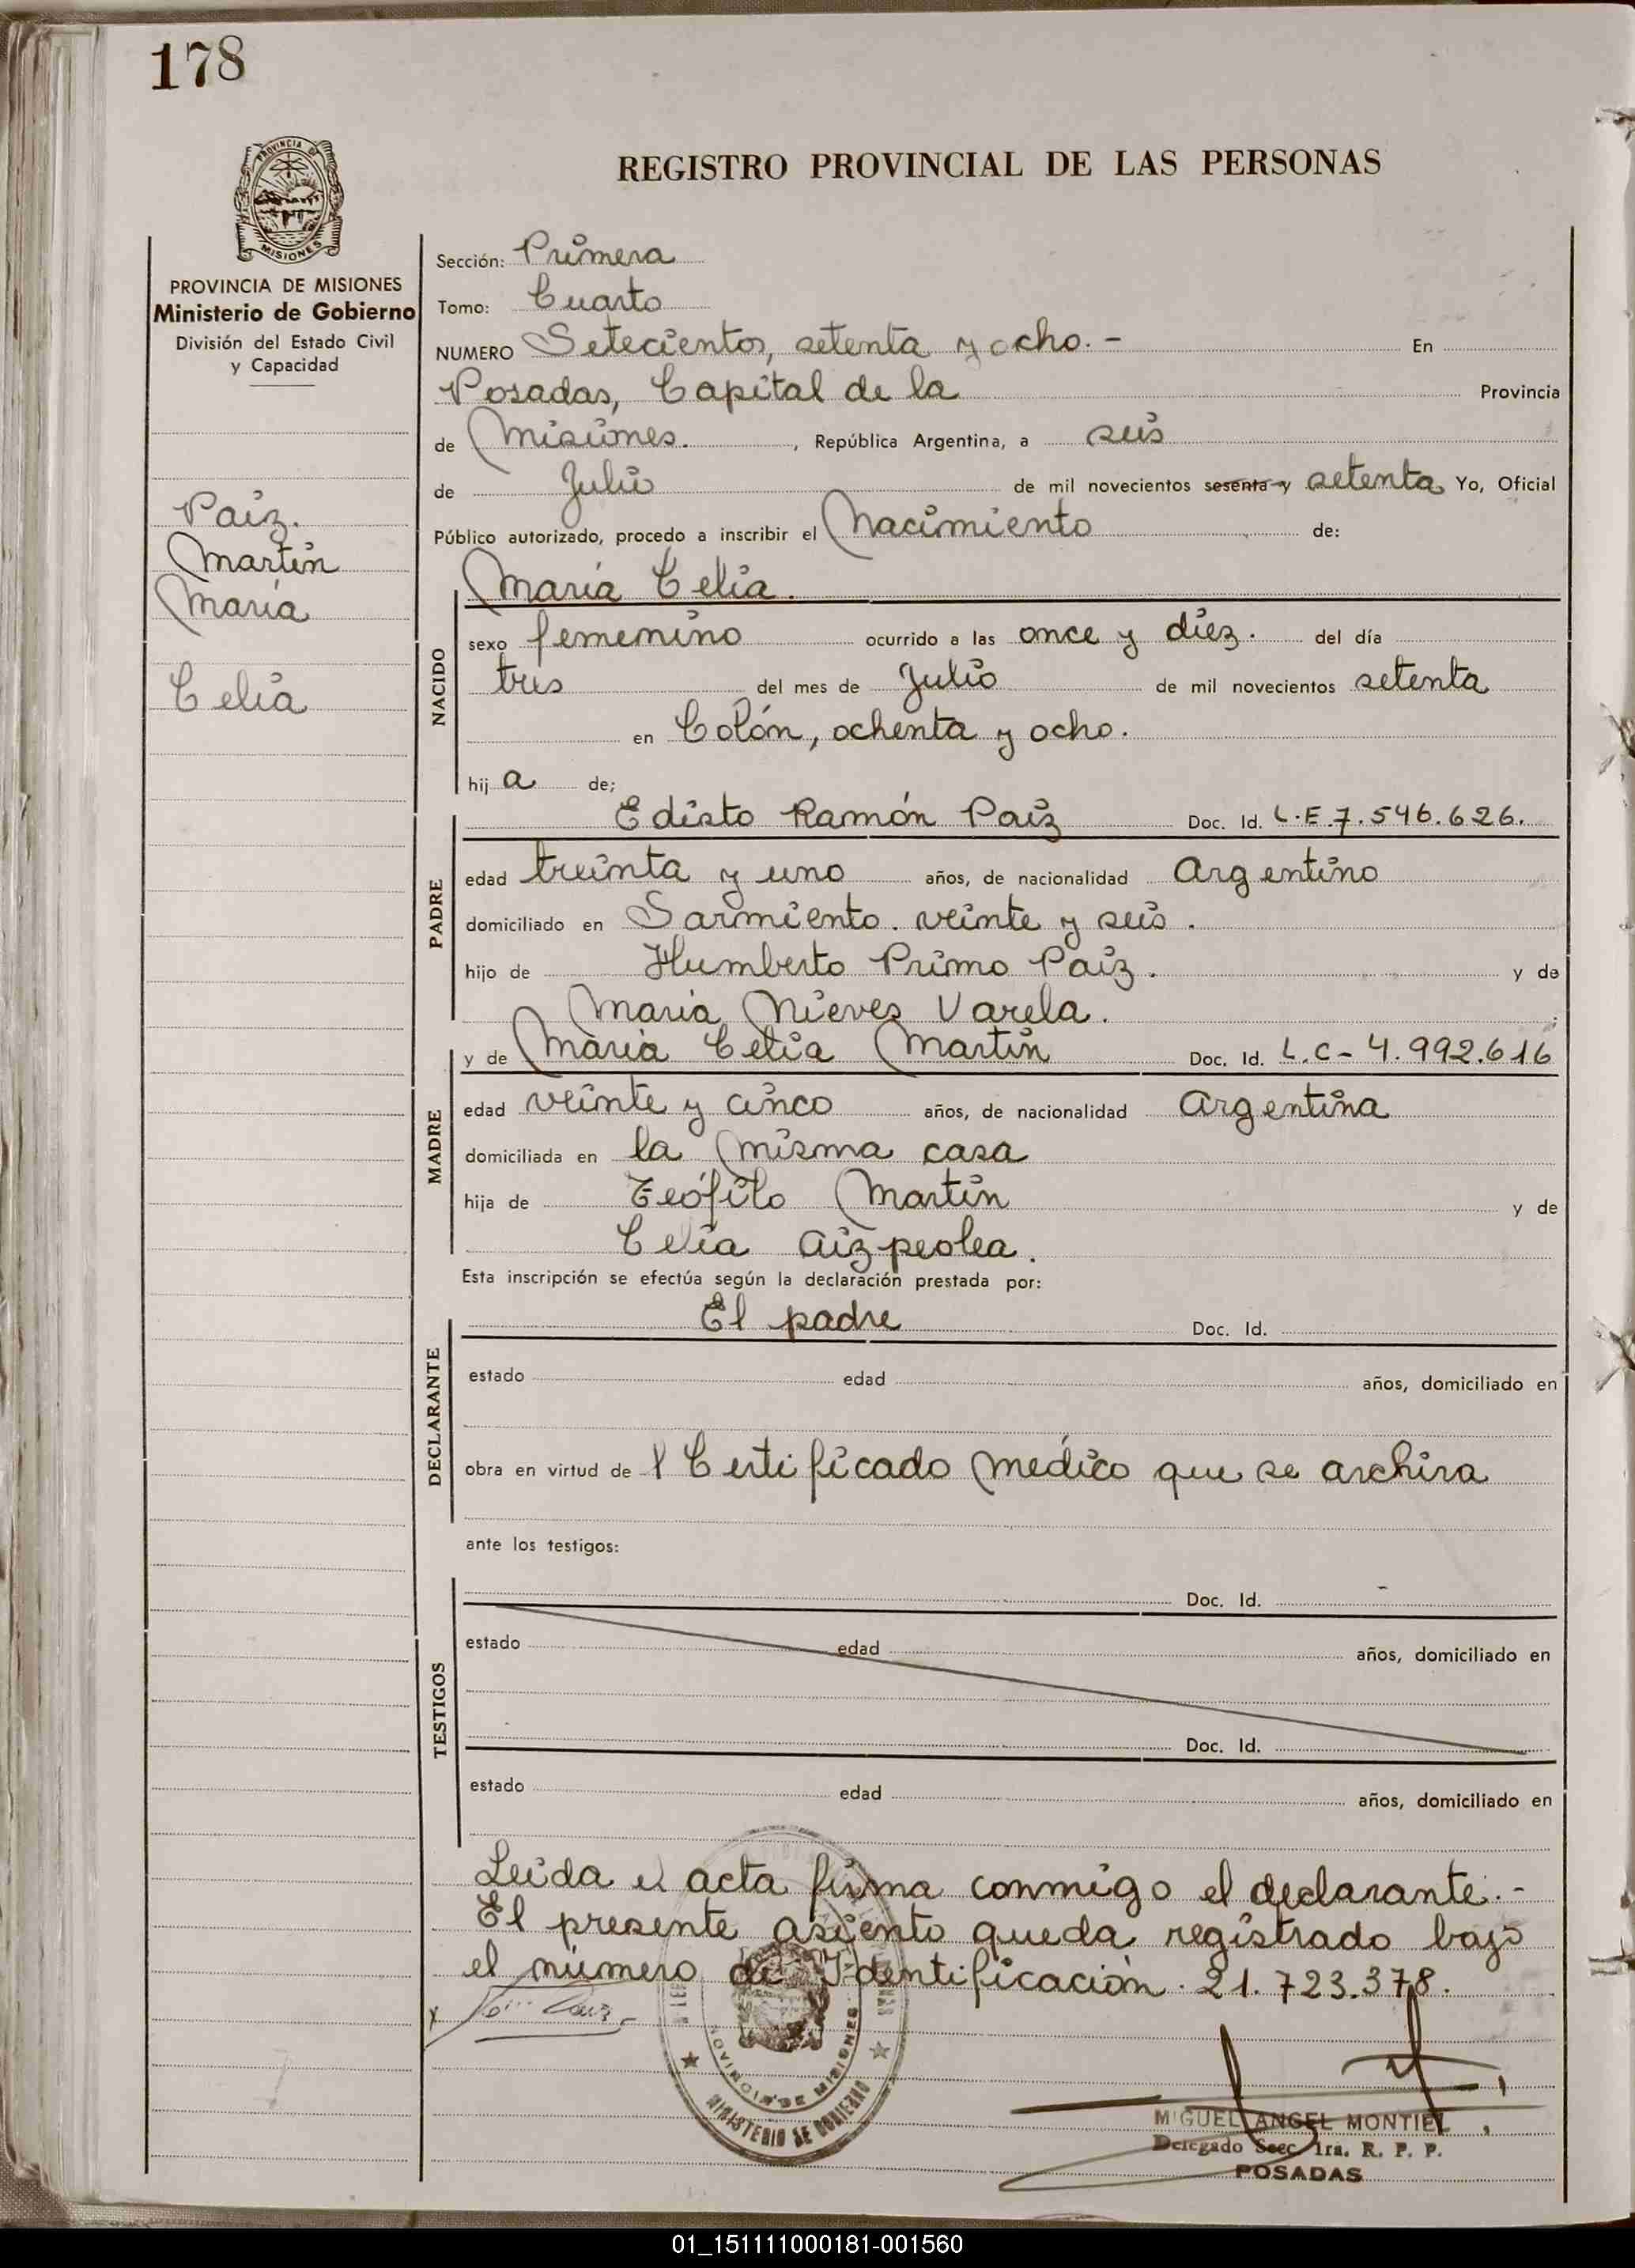 178
REGISTRO PROVINCIAL DE LAS PERSONAS
PROVINCIA DE MISIONES
Ministerio de Gobierno
División del Estado Civil
y Capacidad
Paiz.
Martin
Maria
Celia
Sección: Primera
Tomo: Cuarto
NUMERO Setecientos, setenta y ocho. - En
Posadas, Capital de la Provincia
de Misiones. , República Argentina, a seis
de Julio de mil novecientos sesenta y setenta Yo, Oficial
Público autorizado, procedo a inscribir el Nacimiento de:
María Celia.
NACIDO
sexo femenino ocurrido a las once y diez. del día
tres del mes de Julio de mil novecientos setenta
en Colón, ochenta y ocho.
hij a de;
PADRE
Edisto Ramón Paiz Doc. Id. L.E.7.546.626.
edad treinta y uno años, de nacionalidad Argentino
domiciliado en Sarmiento. veinte y seis.
hijo de Humberto Primo Paiz. y de
María Nieves Varela. ;
MADRE
y de María Celia Martin Doc. Id. L.C- 4.992.616
edad veinte y cinco años, de nacionalidad Argentina
domiciliada en la misma casa
hija de Teófilo Martin y de
Celia Aizpeolea.
Esta inscripción se efectúa según la declaración prestada por:
DECLARANTE
El padre Doc. Id.
estado edad años, domiciliado en
obra en virtud de l Certificado médico que se archiva
ante los testigos:
TESTIGOS
Doc. Id.
estado edad años, domiciliado en
Doc. Id.
estado edad años, domiciliado en
Leída el acta firma conmigo el declarante.-
El presente asiento queda registrado bajo
el número de Identificación. 21.723.378.
PROVINCIA DE MISIONES
MINISTERIO DE GOBIERNO
MIGUEL ANGEL MONTIEL
Delegado Secc 1ra. R. P. P.
POSADAS
01_151111000181-001560